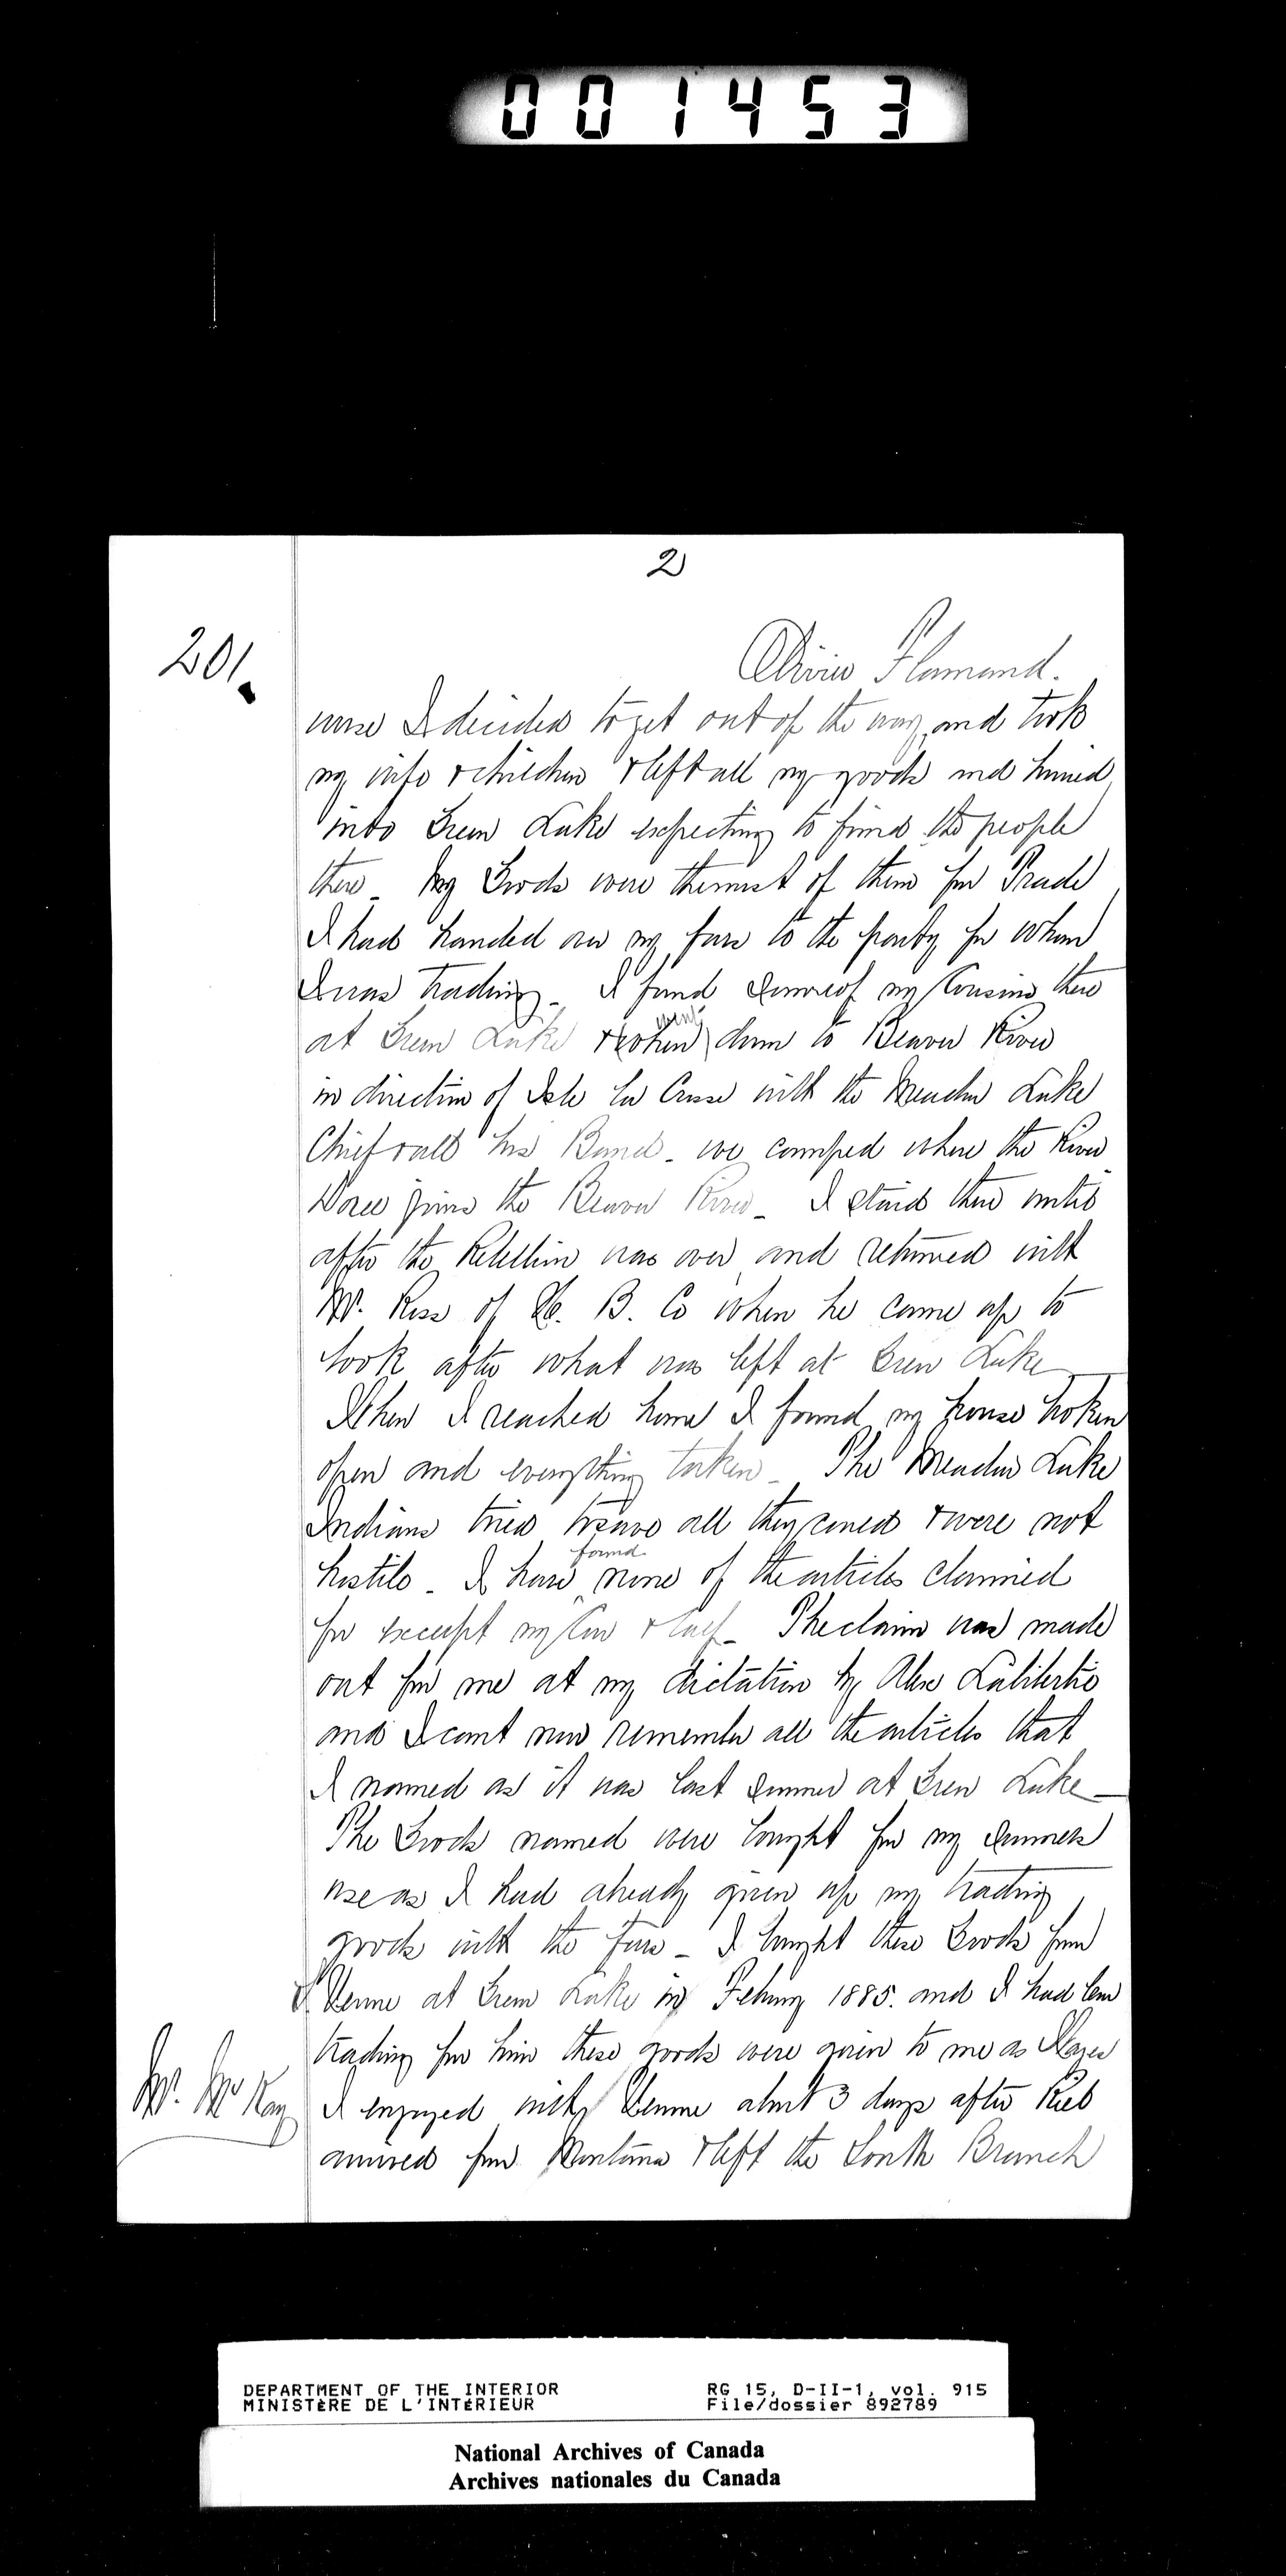 001453
2
201.
Olivier Flamand.
worse I decided to get out of the way and took
my wife & children & left all my goods and hurried
into Green Lake expecting to find the people
there _ My Goods were the most of them for Trade
I had handed over my furs to the party for whom
I was trading _ I found some of my Cousins there
at Green Lake & went down to Beaver River
in direction of Isle La Crosse with the Meadow Lake
Chief & all his Band _ we camped where the River
Doree joins the Beaver River _ I staid there until
after the Rebellion was over and returned with
Mr. Ross of H. B. Co when he came up to
look after what was left at Green Lake
When I reached home I found my house broken
open and everything taken _ The Meadow Lake
Indians tried to save all they could & were not
hostile _ I have found none of the articles claimed
for except my Cow & Calf _ The claim was made
out for me at my dictation by Alex Laliberté
and I cant now remember all the articles that
I named as it was last summer at Green Lake _
The Goods named were bought for my summers
use as I had already given up my trading
goods with the furs _ I bought these Goods from
Venne at Green Lake in Febuary 1885. and I had been
trading for him these goods were given to me as Wages
I engaged with Venne about 3 days after Riel
arrived from Montana & left the South Branch
Mr. McKay
DEPARTMENT OF THE INTERIOR
MINISTÈRE DE L'INTÉRIEUR
RG 15, D-II-1, vol. 915
File/dossier 892789
National Archives of Canada
Archives nationales du Canada